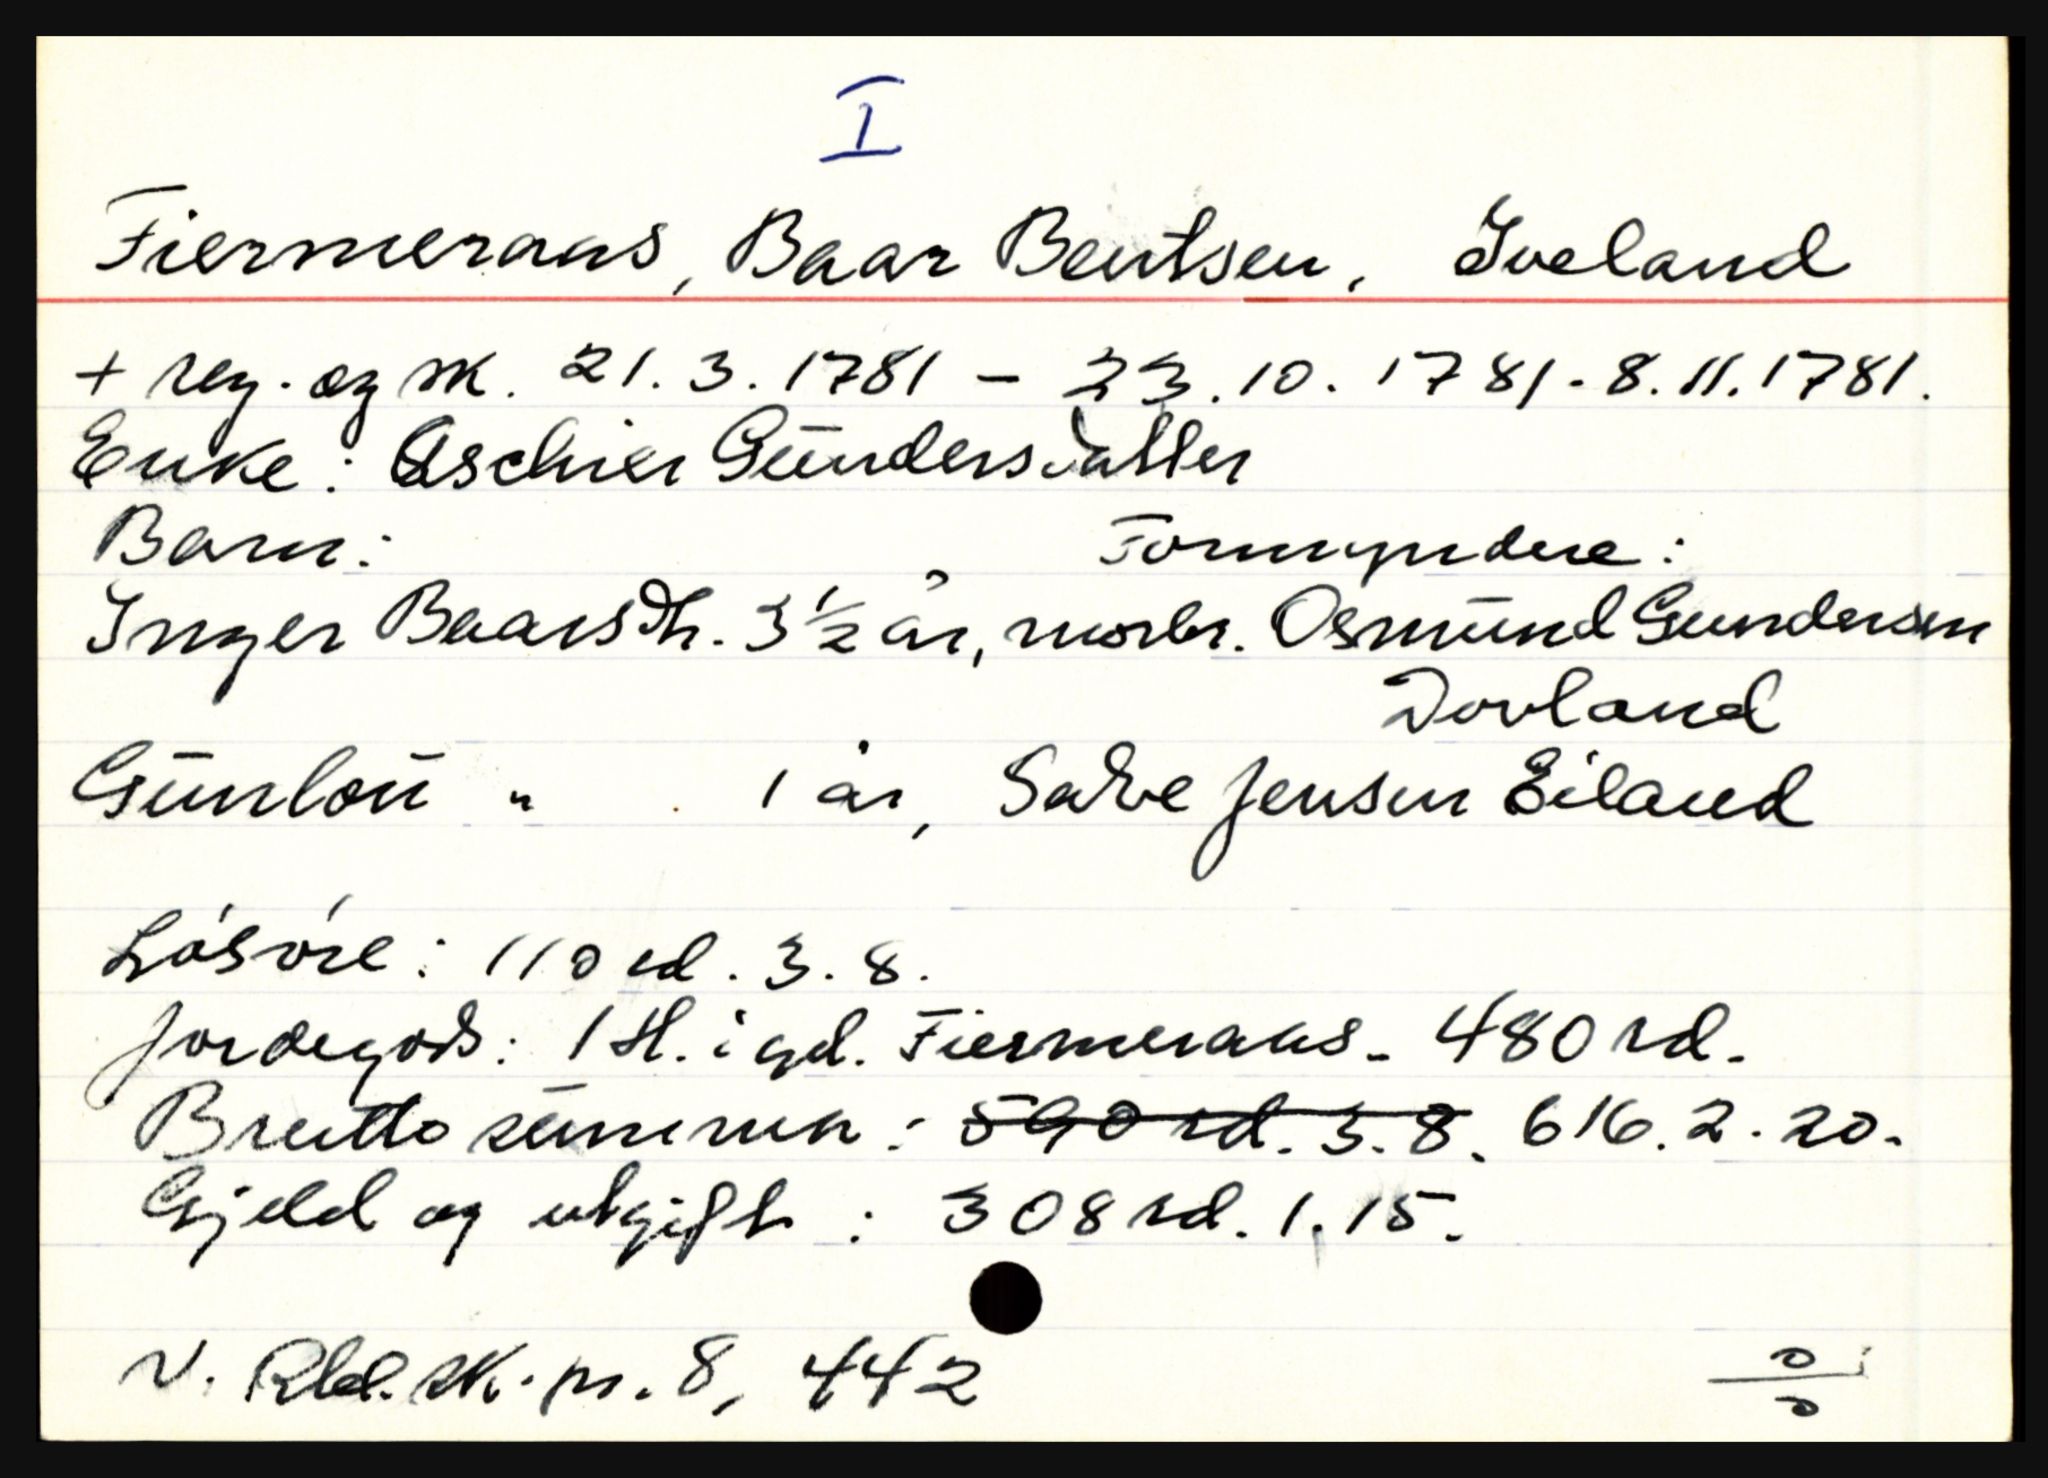 I
Fiermeraas, Baar Bentsen, Iveland
+ reg. og sk. 21.3.1781 - 23.10.1781. 8.11.1781.
Enke: Aschier Gundersdatter
Barn: Formyndere:
Inger Baarsdtr. 3½ år, morbr. Osmund Gundersen
Dovland
Gunlou " 1 år, Salve Jensen Eiland
Lösöre: 110 rd. 3. 8.
Jordegods: 1 H. i gd. Fiermeraas - 480 rd.
Brutto summa: 590 rd. 3. 8. 616. 2. 20.
Gjeld og utgift: 308 rd. 1. 15.
N. Rbd. sk. pr. 8, 442